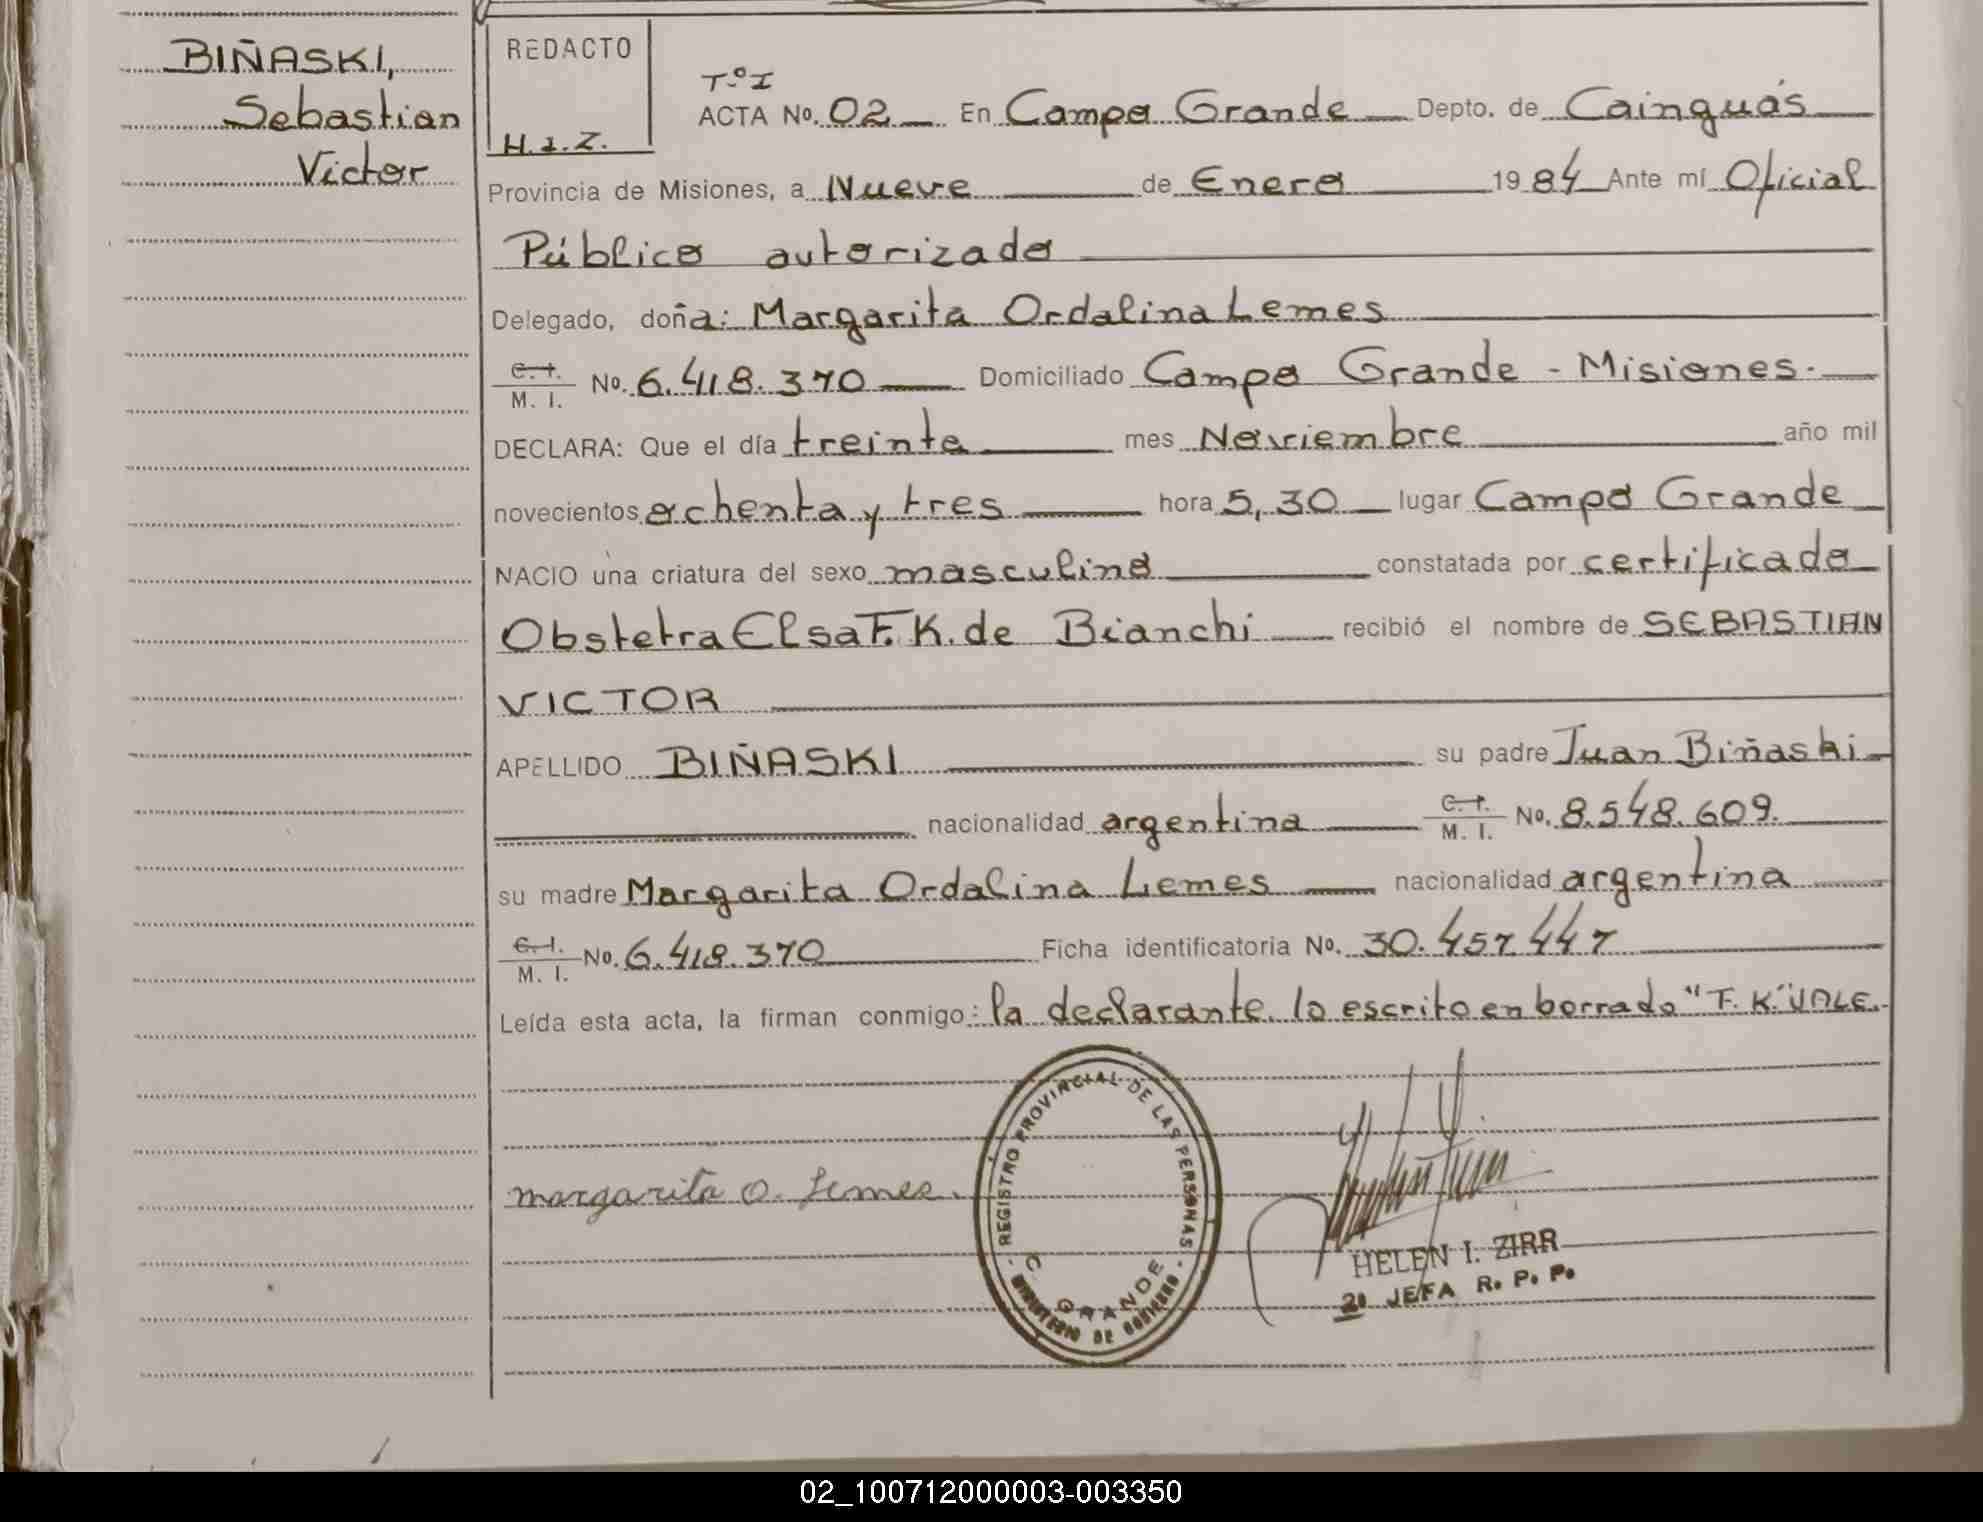 BIÑASKI,
Sebastian
Victor
REDACTO
H.I.Z.
T.º I
ACTA No. 02 En Campo Grande Depto. de Cainguás
Provincia de Misiones, a Nueve de Enero 1984 Ante mí Oficial
Público autorizado
Delegado, doña: Margarita Ordalina Lemes
C. I.
M. I. No. 6.418.370 Domiciliado Campo Grande - Misiones.
DECLARA: Que el día treinta mes Noviembre año mil
novecientos ochenta y tres hora 5,30 lugar Campo Grande
NACIO una criatura del sexo masculino constatada por certificado
Obstetra Elsa F. K. de Bianchi recibió el nombre de SEBASTIAN
VICTOR
APELLIDO BIÑASKI su padre Juan Biñaski
nacionalidad argentina C. I. M. I. No. 8.548.609.
su madre Margarita Ordalina Lemes nacionalidad argentina
C. I.
M. I. No. 6.418.370 Ficha identificatoria No. 30.457.447
Leída esta acta, la firman conmigo: la declarante. lo escrito en borrado "F. K" VALE.
margarita O. Lemes.
REGISTRO PROVINCIAL DE LAS PERSONAS
C. GRANDE
MINISTERIO DE GOBIERNO
HELEN I. ZIRR
2a JEFA R. P. P.
02_100712000003-003350